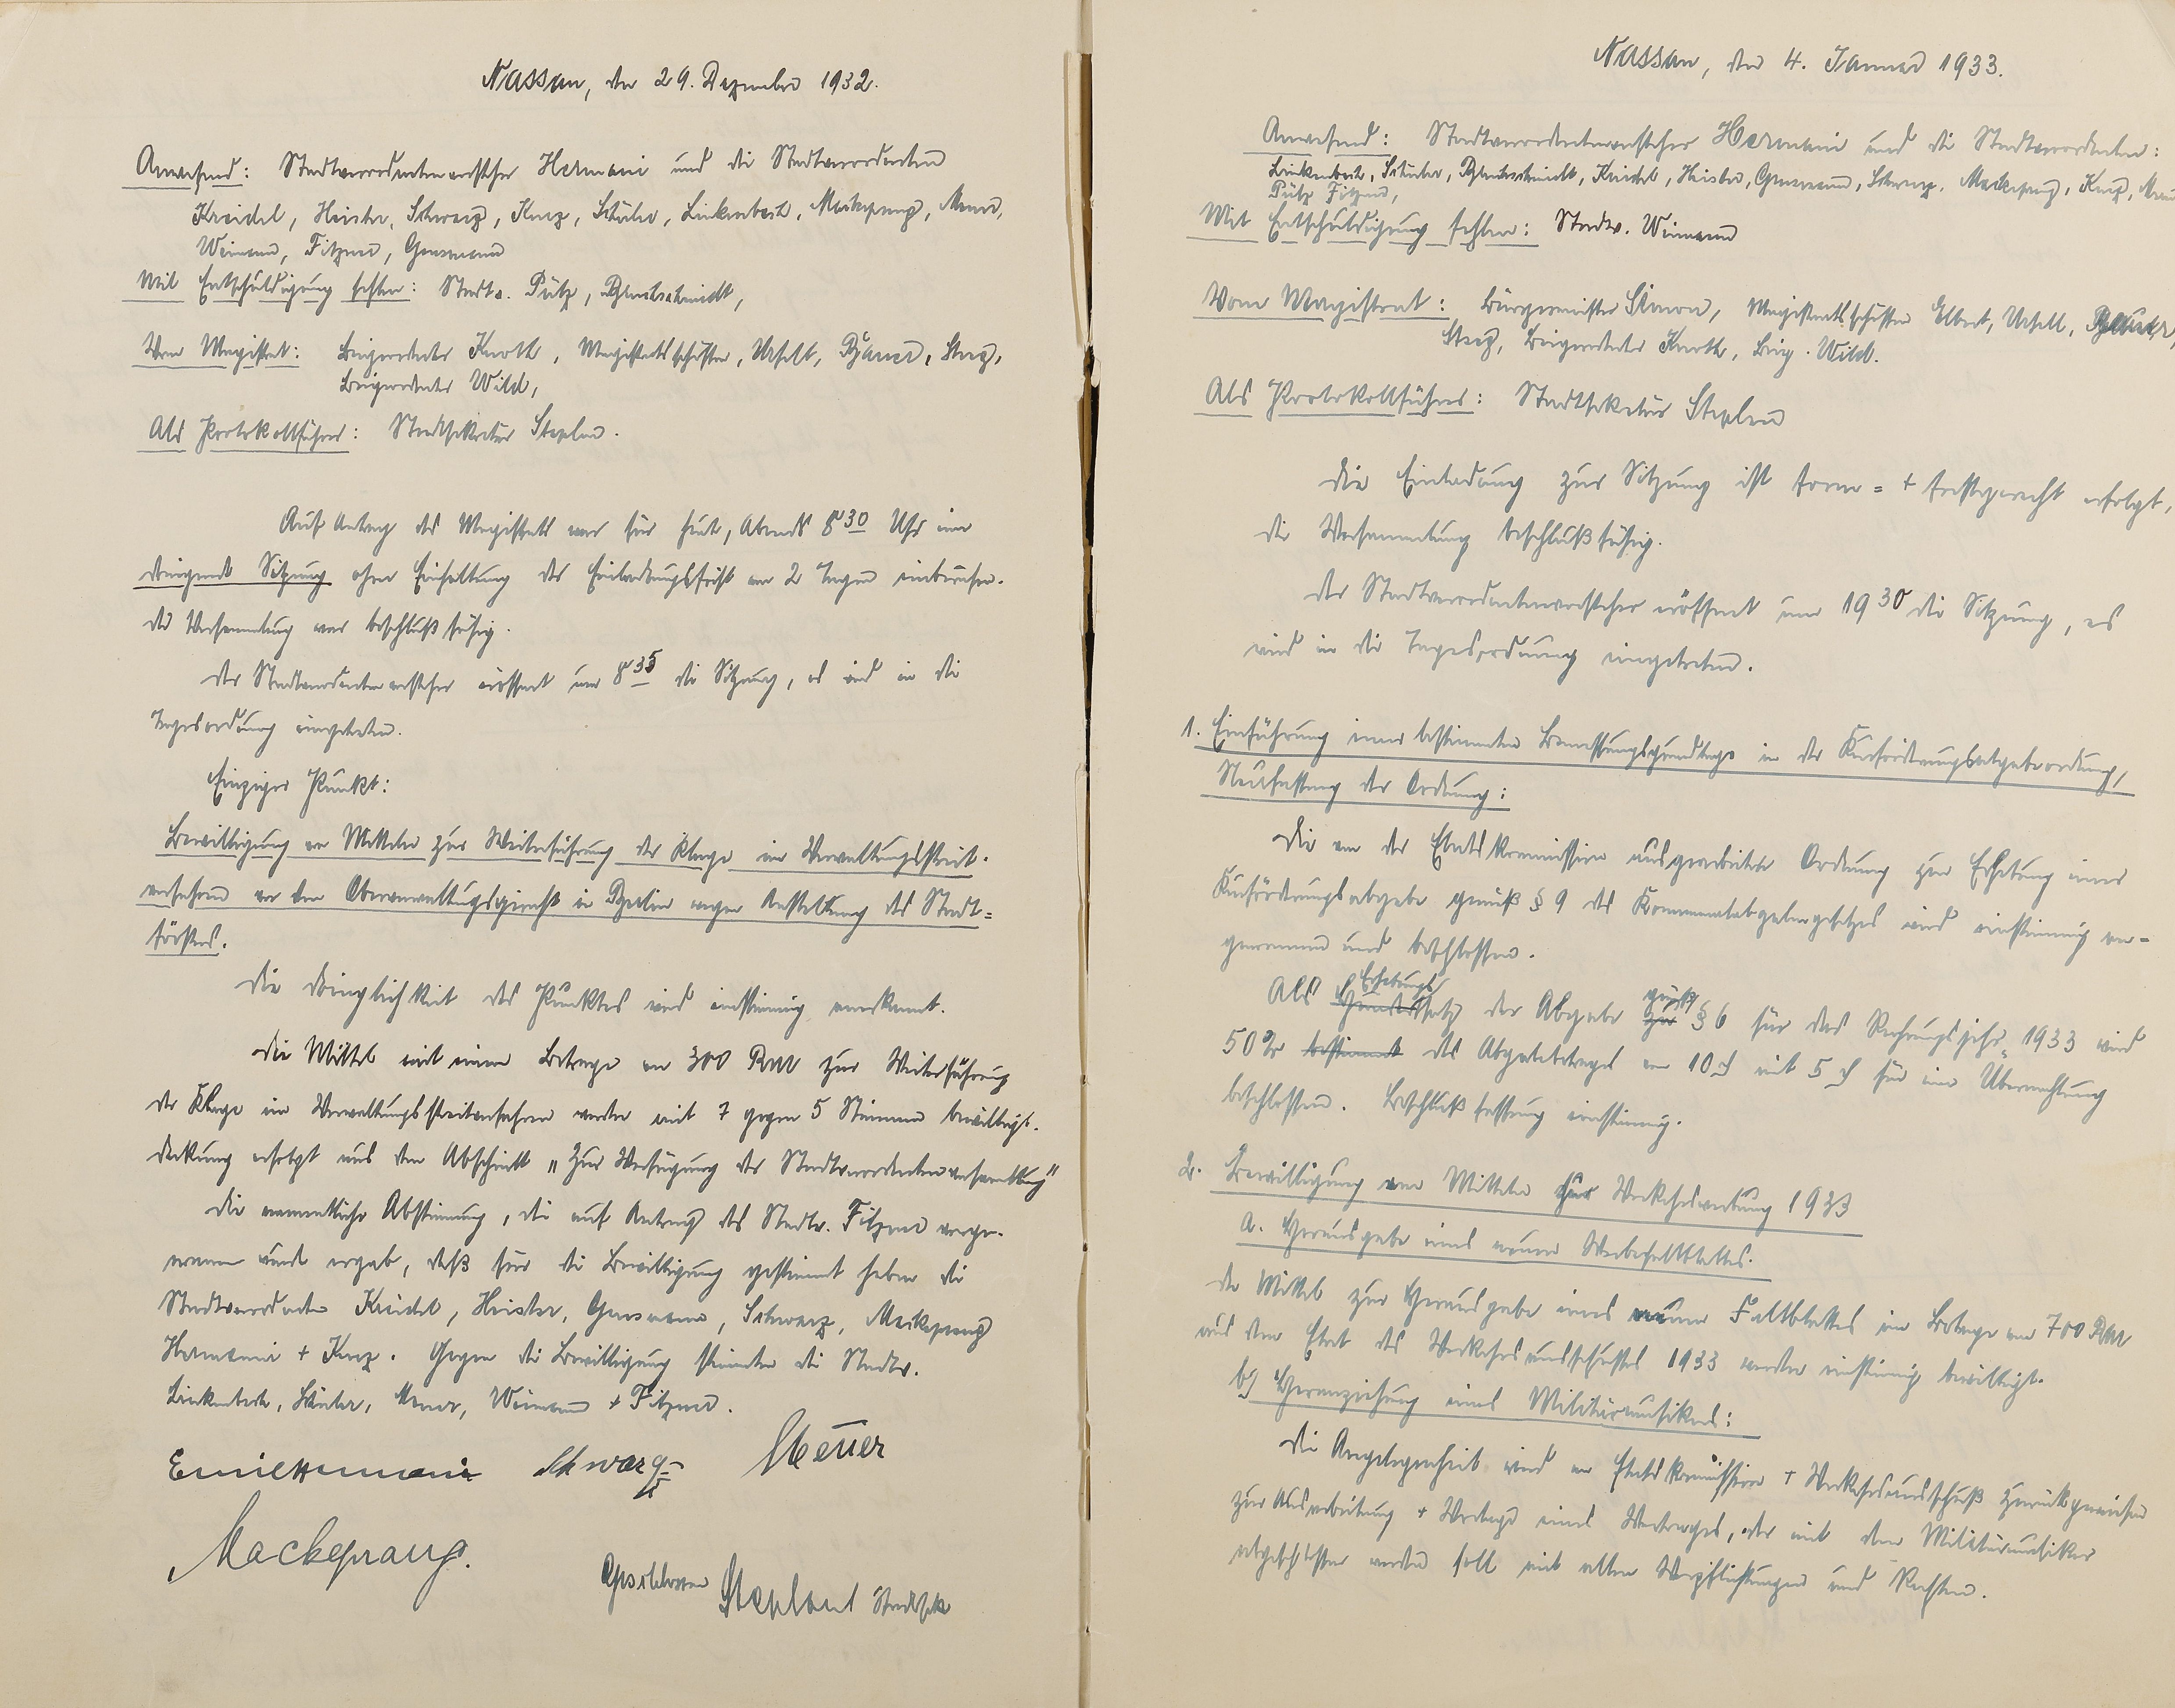 Nassau, den 29. Dezember 1932.
Anwesend: Stadtverordnetenvorsteher Hermani und die Stadtverordneten
Kreidel, Heister, Schwarz, Kurz, Schüler, Linkenbach, Mackeprang, Meuer,
Weimann, Fitzner, Gensmann
Mit Entschuldigung fehlen: Stadtv. Pütz, Blankschmidt,
Vom Magistrat: Beigeordneter Knoth, Magistratsschöffen, Unselt, Bauer, Sterz,
Beigeordneter Wild,
Als Protokollführer: Stadtsekretär Stephan.
Auf Antrag des Magistrats war für heute, Abends 8 30 Uhr eine
dringende Sitzung ohne Einhaltung der Einladungsfrist von 2 Tagen einberufen.
Die Versammlung war beschlußfähig.
Der Stadtverordnetenvorsteher eröffnet um 8 35 die Sitzung, es wird in die
Tagesordnung eingetreten.
Einziger Punkt:
Bewilligung von Mitteln zur Weiterführung der Klage im Verwaltungsstreit-
verfahren vor dem Oberverwaltungsgericht in Berlin wegen Anstellung des Stadt=
försters.
Die Dringlichkeit des Punktes wird einstimmig anerkannt.
Die Mittel mit einem Betrage von 300 RM zur Weiterführung
der Klage im Verwaltungsstreitverfahren werden mit 7 gegen 5 Stimmen bewilligt.
Deckung erfolgt aus dem Abschnitt "Zur Verfügung der Stadtverordnetenversammlung"
Die namentliche Abstimmung, die auf Antrag des Stadtv. Fitzner vorge-
nommen wurde ergab, daß für die Bewilligung gestimmt haben die
Stadtverordneten Kreidel, Heister, Gensmann, Schwarz, Mackeprang
Hermani + Kurz. Gegen die Bewilligung stimmten die Stadtv.
Linkenbach, Schüler, Meuer, Weimann + Fitzner.
Emil Hermani Schwarz Meuer
Mackeprang.
Geschlossen Stephan Stadtsekr
Nassau, den 4. Januar 1933.
Anwesend: Stadtverordnetenvorsteher Hermani und die Stadtverordneten:
Linkenbach, Schüler, Blankschmidt, Kreidel, Heister, Gensmann, Schwarz, Mackeprang, Kurz, Meuer
Pütz Fitzner,
Mit Entschuldigung fehlen: Stadtv. Weimann
Vom Magistrat: Bürgermeister Simon, Magistratsschöffen Elbert, Unselt,
Sterz, Beigeordneter Knoth, Beig. Wild.
Als Protokollführer: Stadtsekretär Stephan
Die Einladung zur Sitzung ist form= + fristgerecht erfolgt,
die Versammlung beschlußfähig.
Der Stadtverordnetenvorsteher eröffnet um 19 30 die Sitzung, es
wird in die Tagesordnung eingetreten.
1. Einführung einer bestimmten Bemessungsgrundlage in der Kurförderungsabgabeordnung,
Neufassung der Ordnung:
Die von der Etatskommission ausgearbeitete Ordnung zur Erhebung einer
Kurförderungsabgabe gemäß § 9 des Kommunalabgabengesetzes wird einstimmig an-
genommen und beschlossen.
Als Erhebungssatz der Abgabe gemäß § 6 für das Rechnungsjahr 1933 wird
50% bestimmt des Abgabebetrages von 10 ₰ mit 5 ₰ für eine Übernachtung
beschlossen. Beschlußfassung einstimmig.
2. Bewilligung von Mitteln zur Verkehrswerbung 1933
a. Herausgabe eines neuen Werbefaltblattes.
Die Mittel zur Herausgabe eines neuen Faltblattes im Betrage von 700 RM
aus dem Etat des Verkehrsausschusses 1933 werden einstimmig bewilligt.
b) Heranziehung eines Militärmusikers:
Die Angelegenheit wird an Etatskommission + Verkehrsausschuß zurückgewiesen
zur Ausarbeitung + Vorlage eines Vertrages, der mit dem Militärmusiker
abgeschlossen werden soll mit allen Verpflichtungen und Rechten.